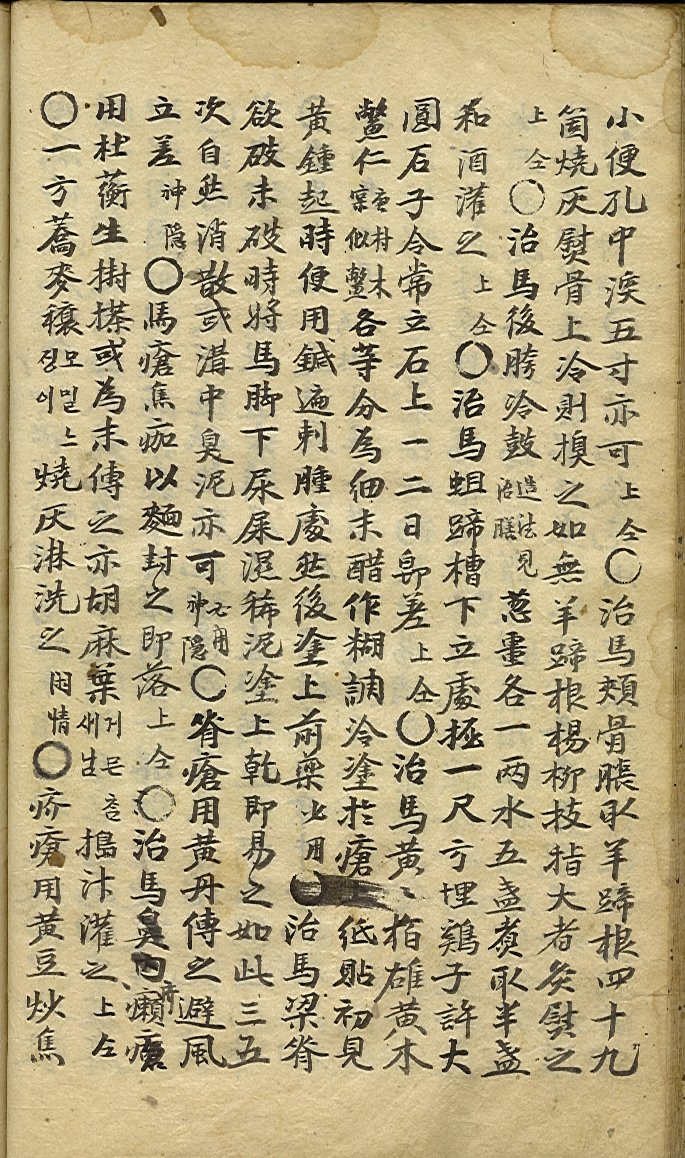 小便孔中深五寸亦可上仝○治馬頰骨脹取羊蹄根四十九
箇燒灰熨骨上冷則換之如無羊蹄根楊柳枝指大者炙熨之
上仝○治馬後胯冷鼓造法見治膁葱棗各一兩水五盞煮取半盞
和酒灌之上仝○治馬蛆蹄槽下立處掘一尺方埋鷄子許大
圓石子令常立石上一二日即差上仝○治馬黃黃栢雄黃木
鱉仁㝡似鱉各等分爲細末醋作糊調冷塗於瘡上紙貼初見
黃鍾起時便用鍼遍刺腫處然後塗上前藥必用○治馬梁脊
欲破未破時將馬脚下尿屎濕稀泥塗上乾即易之如此三五
次自然消散或溝中臭泥亦可必用神隱○脊瘡用黃丹傅之避風
立差神隱○馬瘡焦痂以麵封之即落上仝○治馬鼻內癩瘡
用杜蘅生擣搽或爲末傅之亦胡麻葉搗汁灌之上仝
○一方蕎麥穰모밀ㅅ烧灰淋洗之閑情○疥瘡用黃豆炒焦